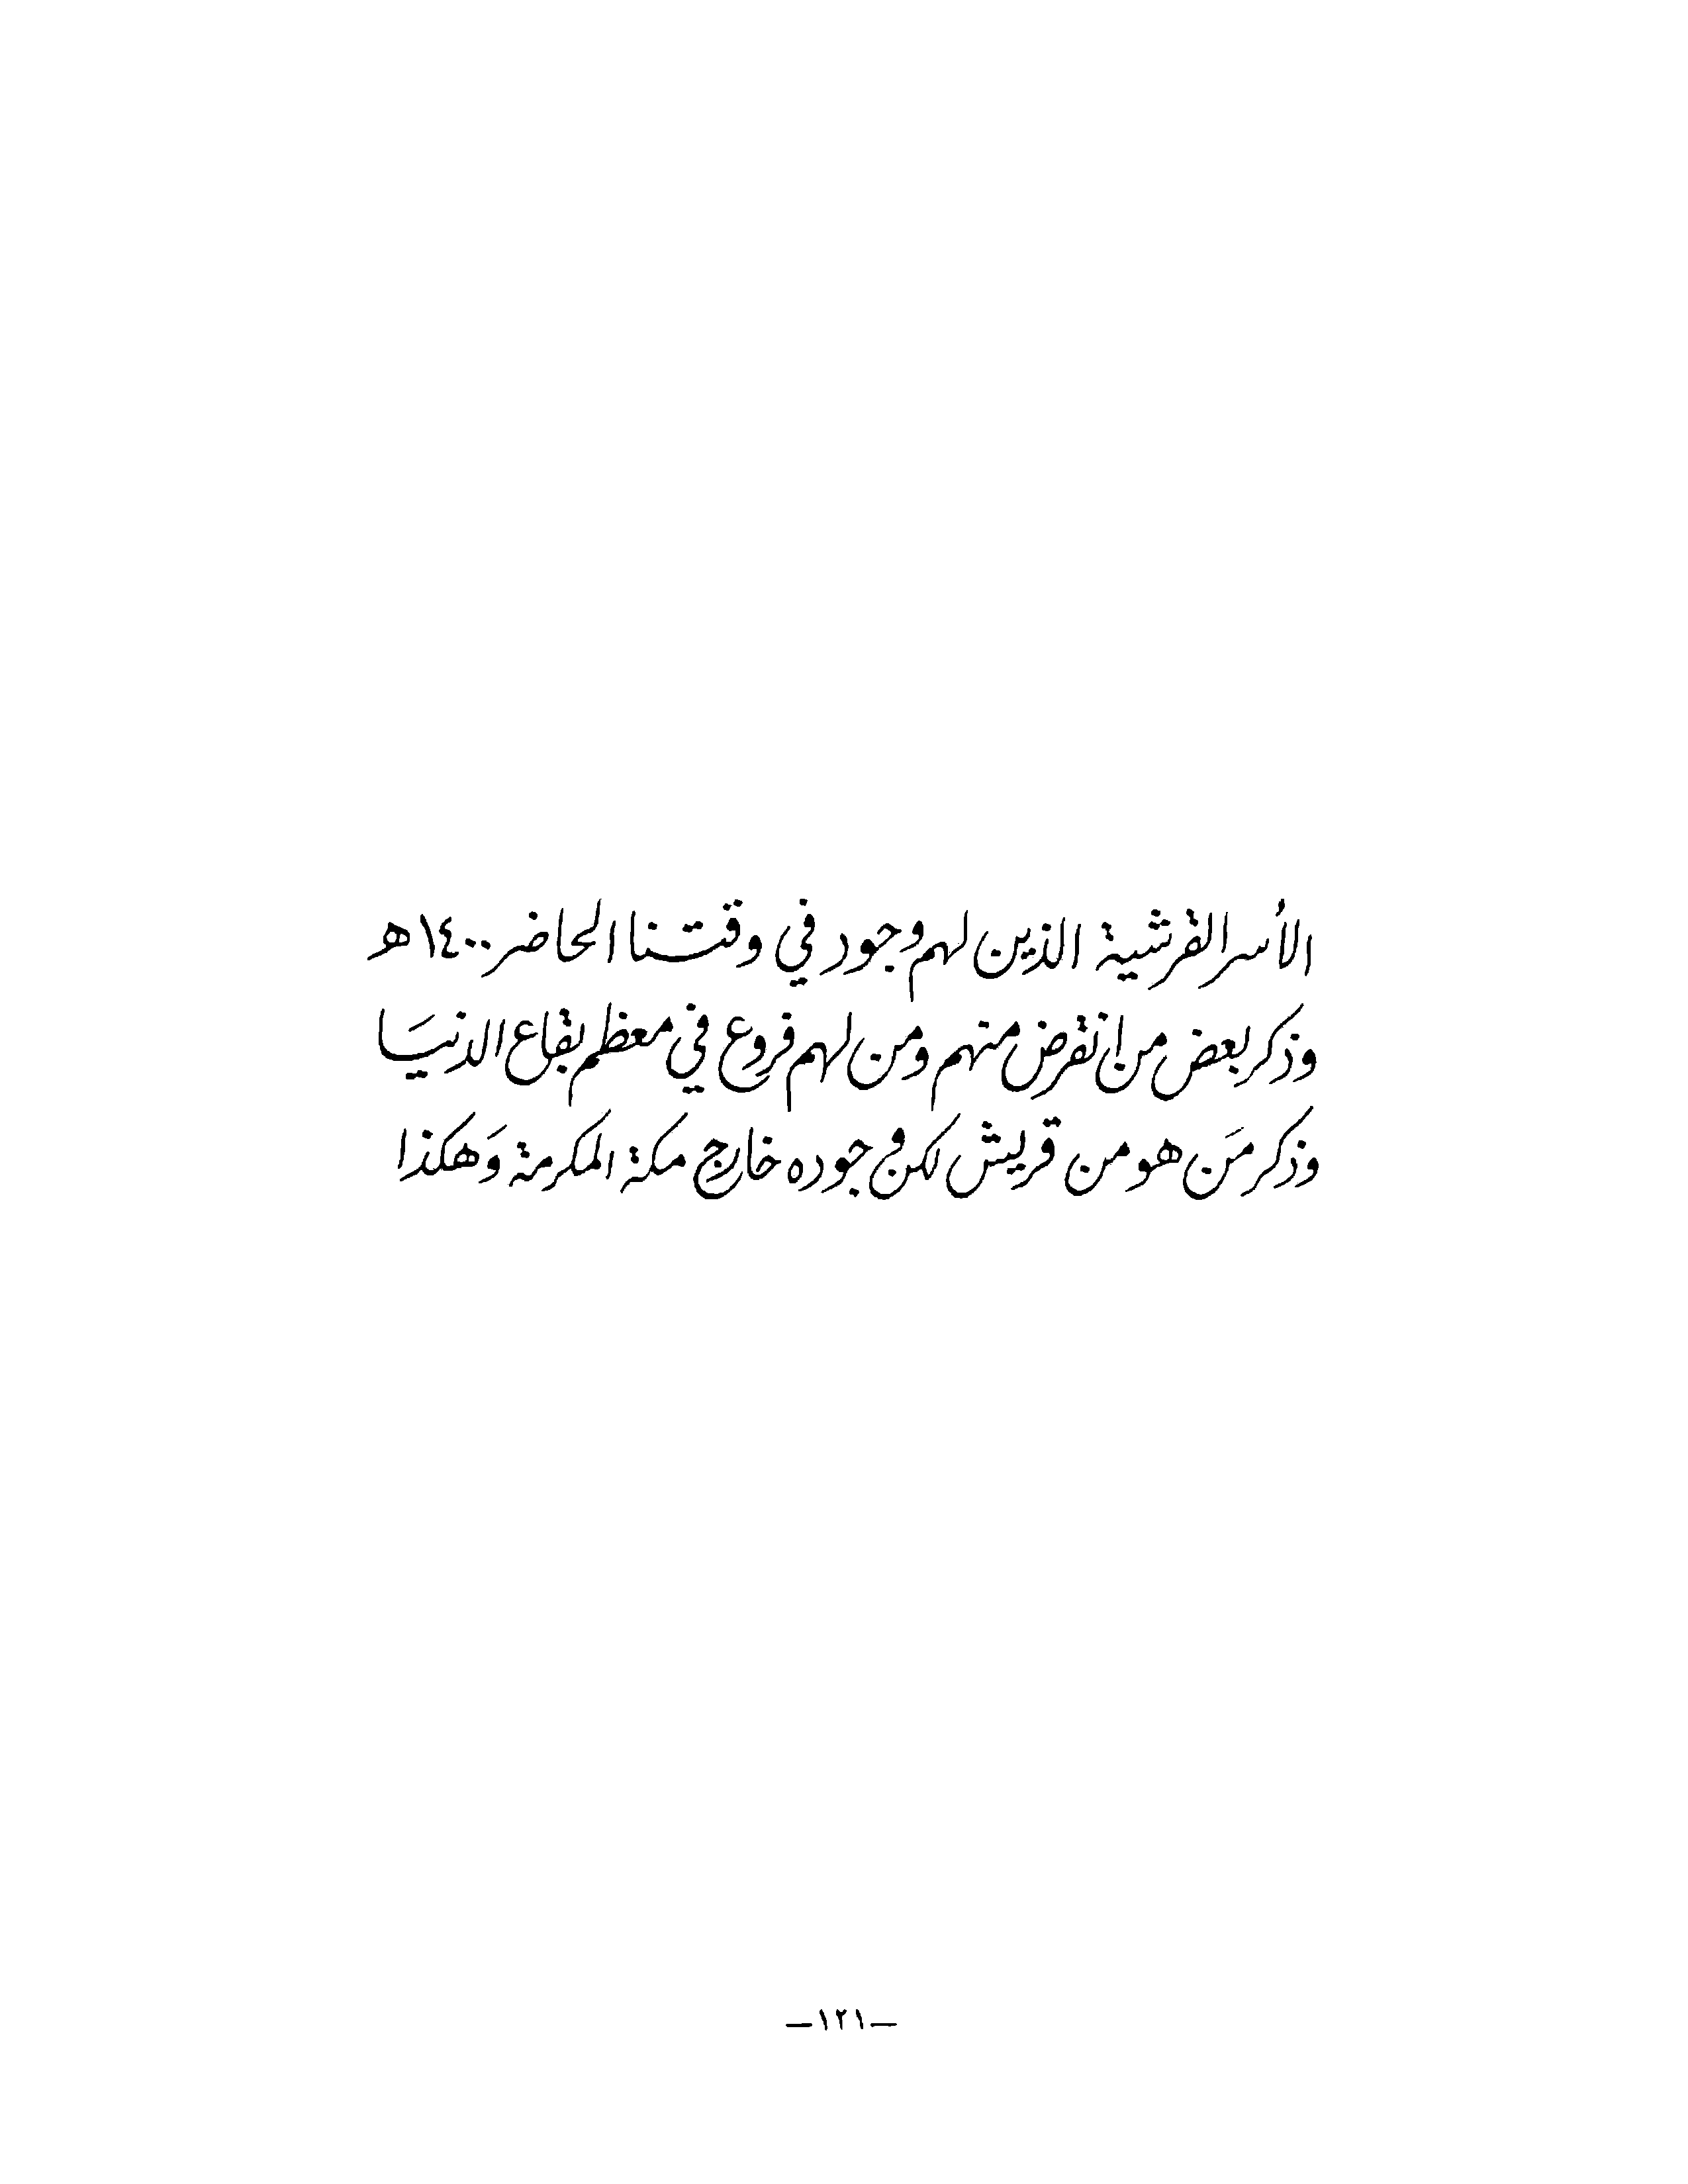 الأسر القرشية الذين لهم وجود في وقتنا الحاضر ١٤٠٠هـ
وذكر بعض من انقرض منهم ومن لهم فروع في معظم بقاع الدنيَا
وذكر مَن هو من قريش لكن وجوده خارج مكة المكرمة وَهكذا
—١٢١—